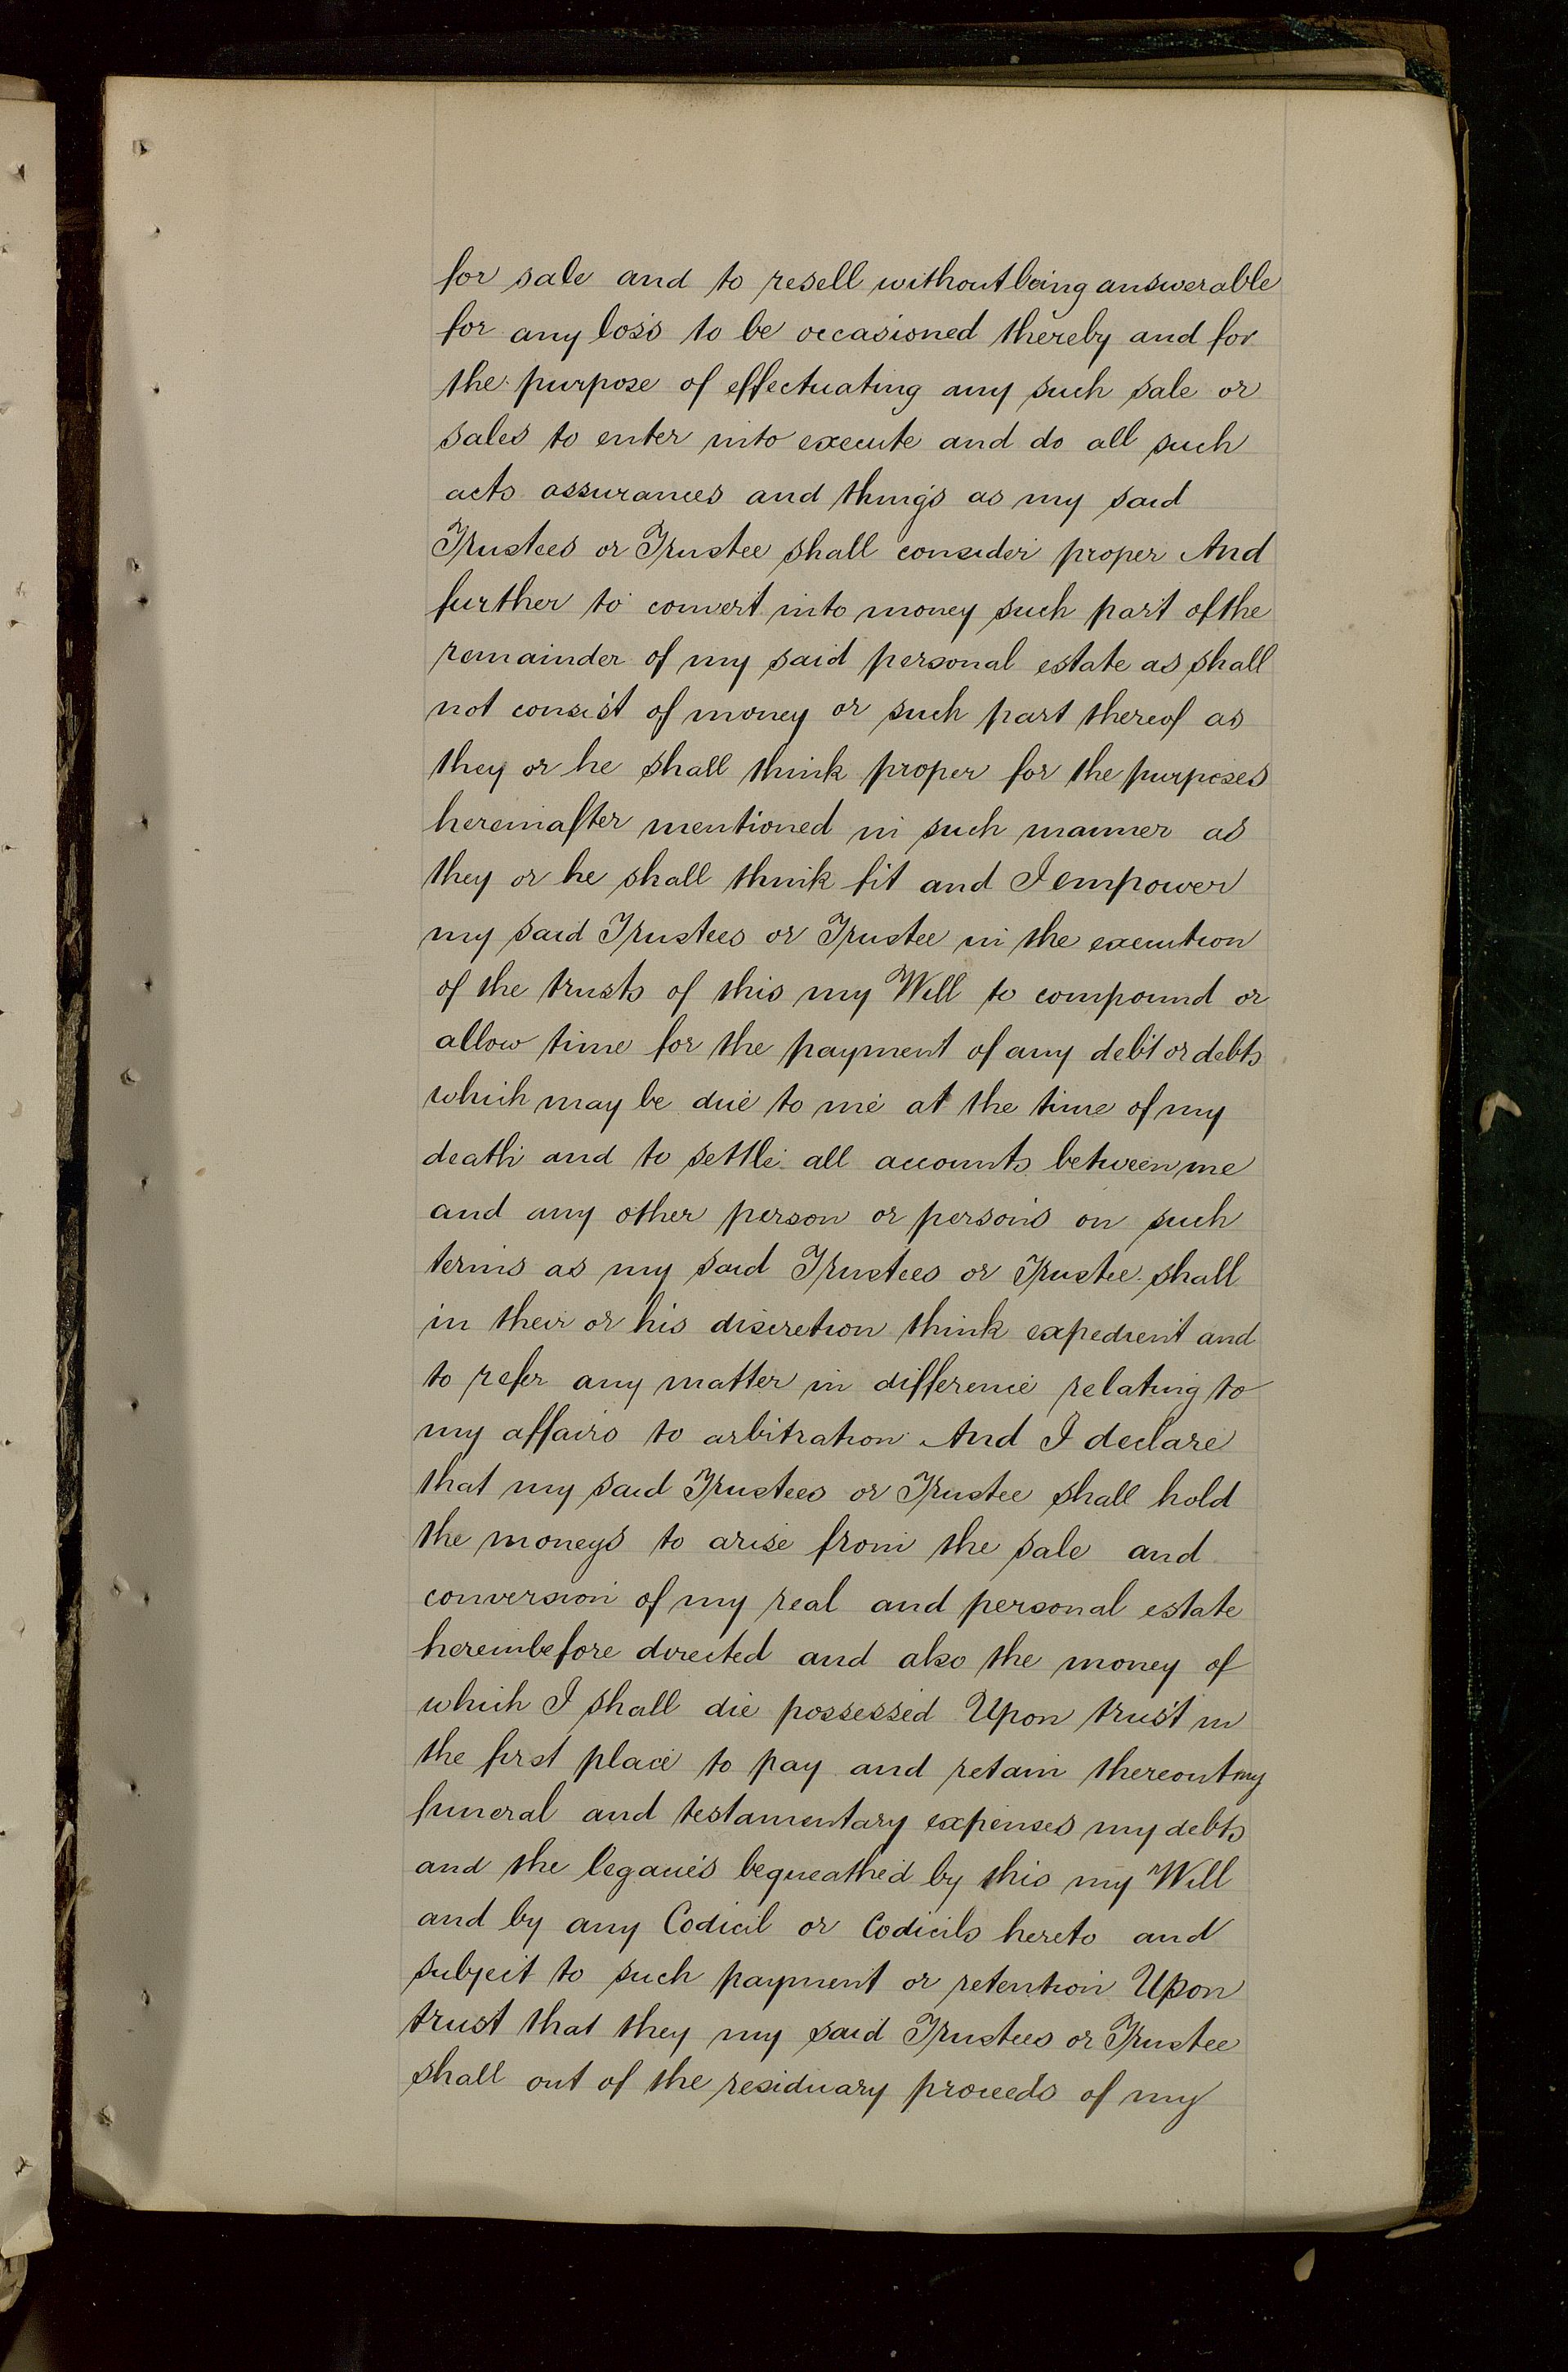 for sale and to resell without being answerable
for any loss to be occasioned thereby and for
the purpose of effectuating any such sale or
sales to enter into execute and do all such
acts assurances and things as my said
Trustees or Trustee shall consider proper And
further to convert into money such part of the
remainder of my said personal estate as shall
not consist of money or such part thereof as
they or he shall think proper for the purposes
hereinafter mentioned in such manner as
they or he shall think fit and I empower
my said Trustees or Trustee in the execution
of the trusts of this my Will to compound or
allow time for the payment of any debt or debts
which may be due to me at the time of my
death and to settle all accounts between me
and any other person or persons on such
terms as my said Trustees or Trustee shall
in their or his discretion think expedient and
to refer any matter in difference relating to
my affairs to arbitration And I declare
that my said Trustees or Trustee shall hold
the moneys to arise from the sale and
conversion of my real and personal estate
hereinbefore directed and also the money of
which I shall die possessed Upon trust in
the first place to pay and retain thereout my
funeral and testamentary expenses my debts
and the legacies bequeathed by this my Will
and by any Codicil or Codicils hereto and
subject to such payment or retention Upon
trust that they my said Trustees or Trustee
shall out of the residuary proceeds of my